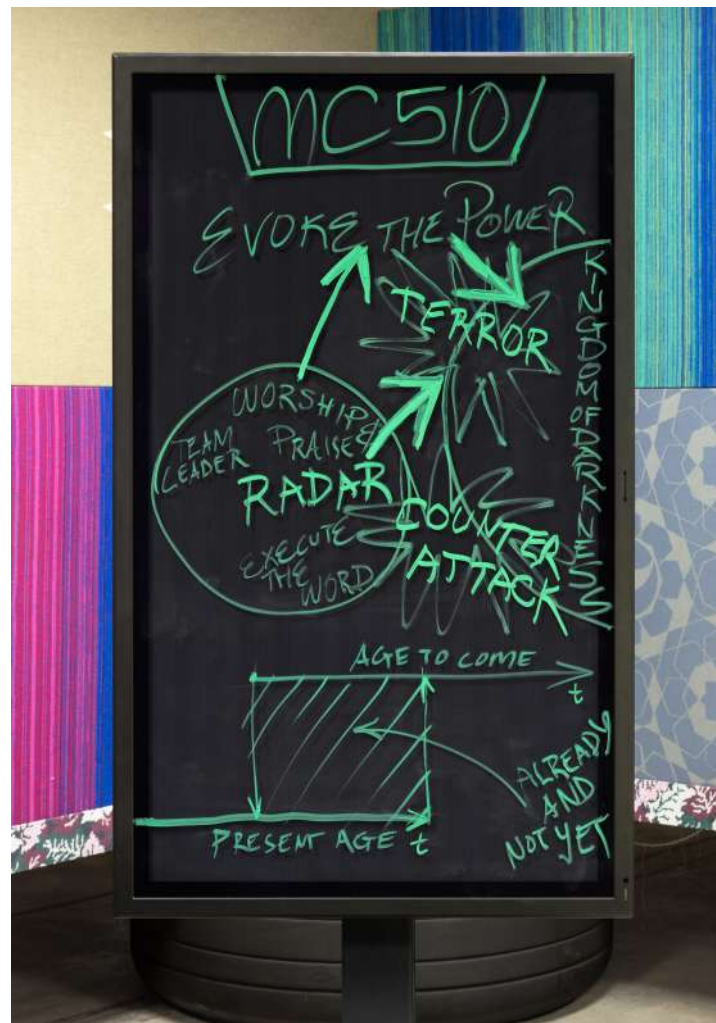 MC510
EVOKE THE POWER
TERROR
KINGDOM OF DARKNESS
WORSHIP &
PRAISE &
TEAM
LEADER
RADAR
EXECUTE
THE
WORD
COUNTER
ATTACK
AGE TO COME
t
ALREADY
AND
NOT YET
PRESENT AGE t